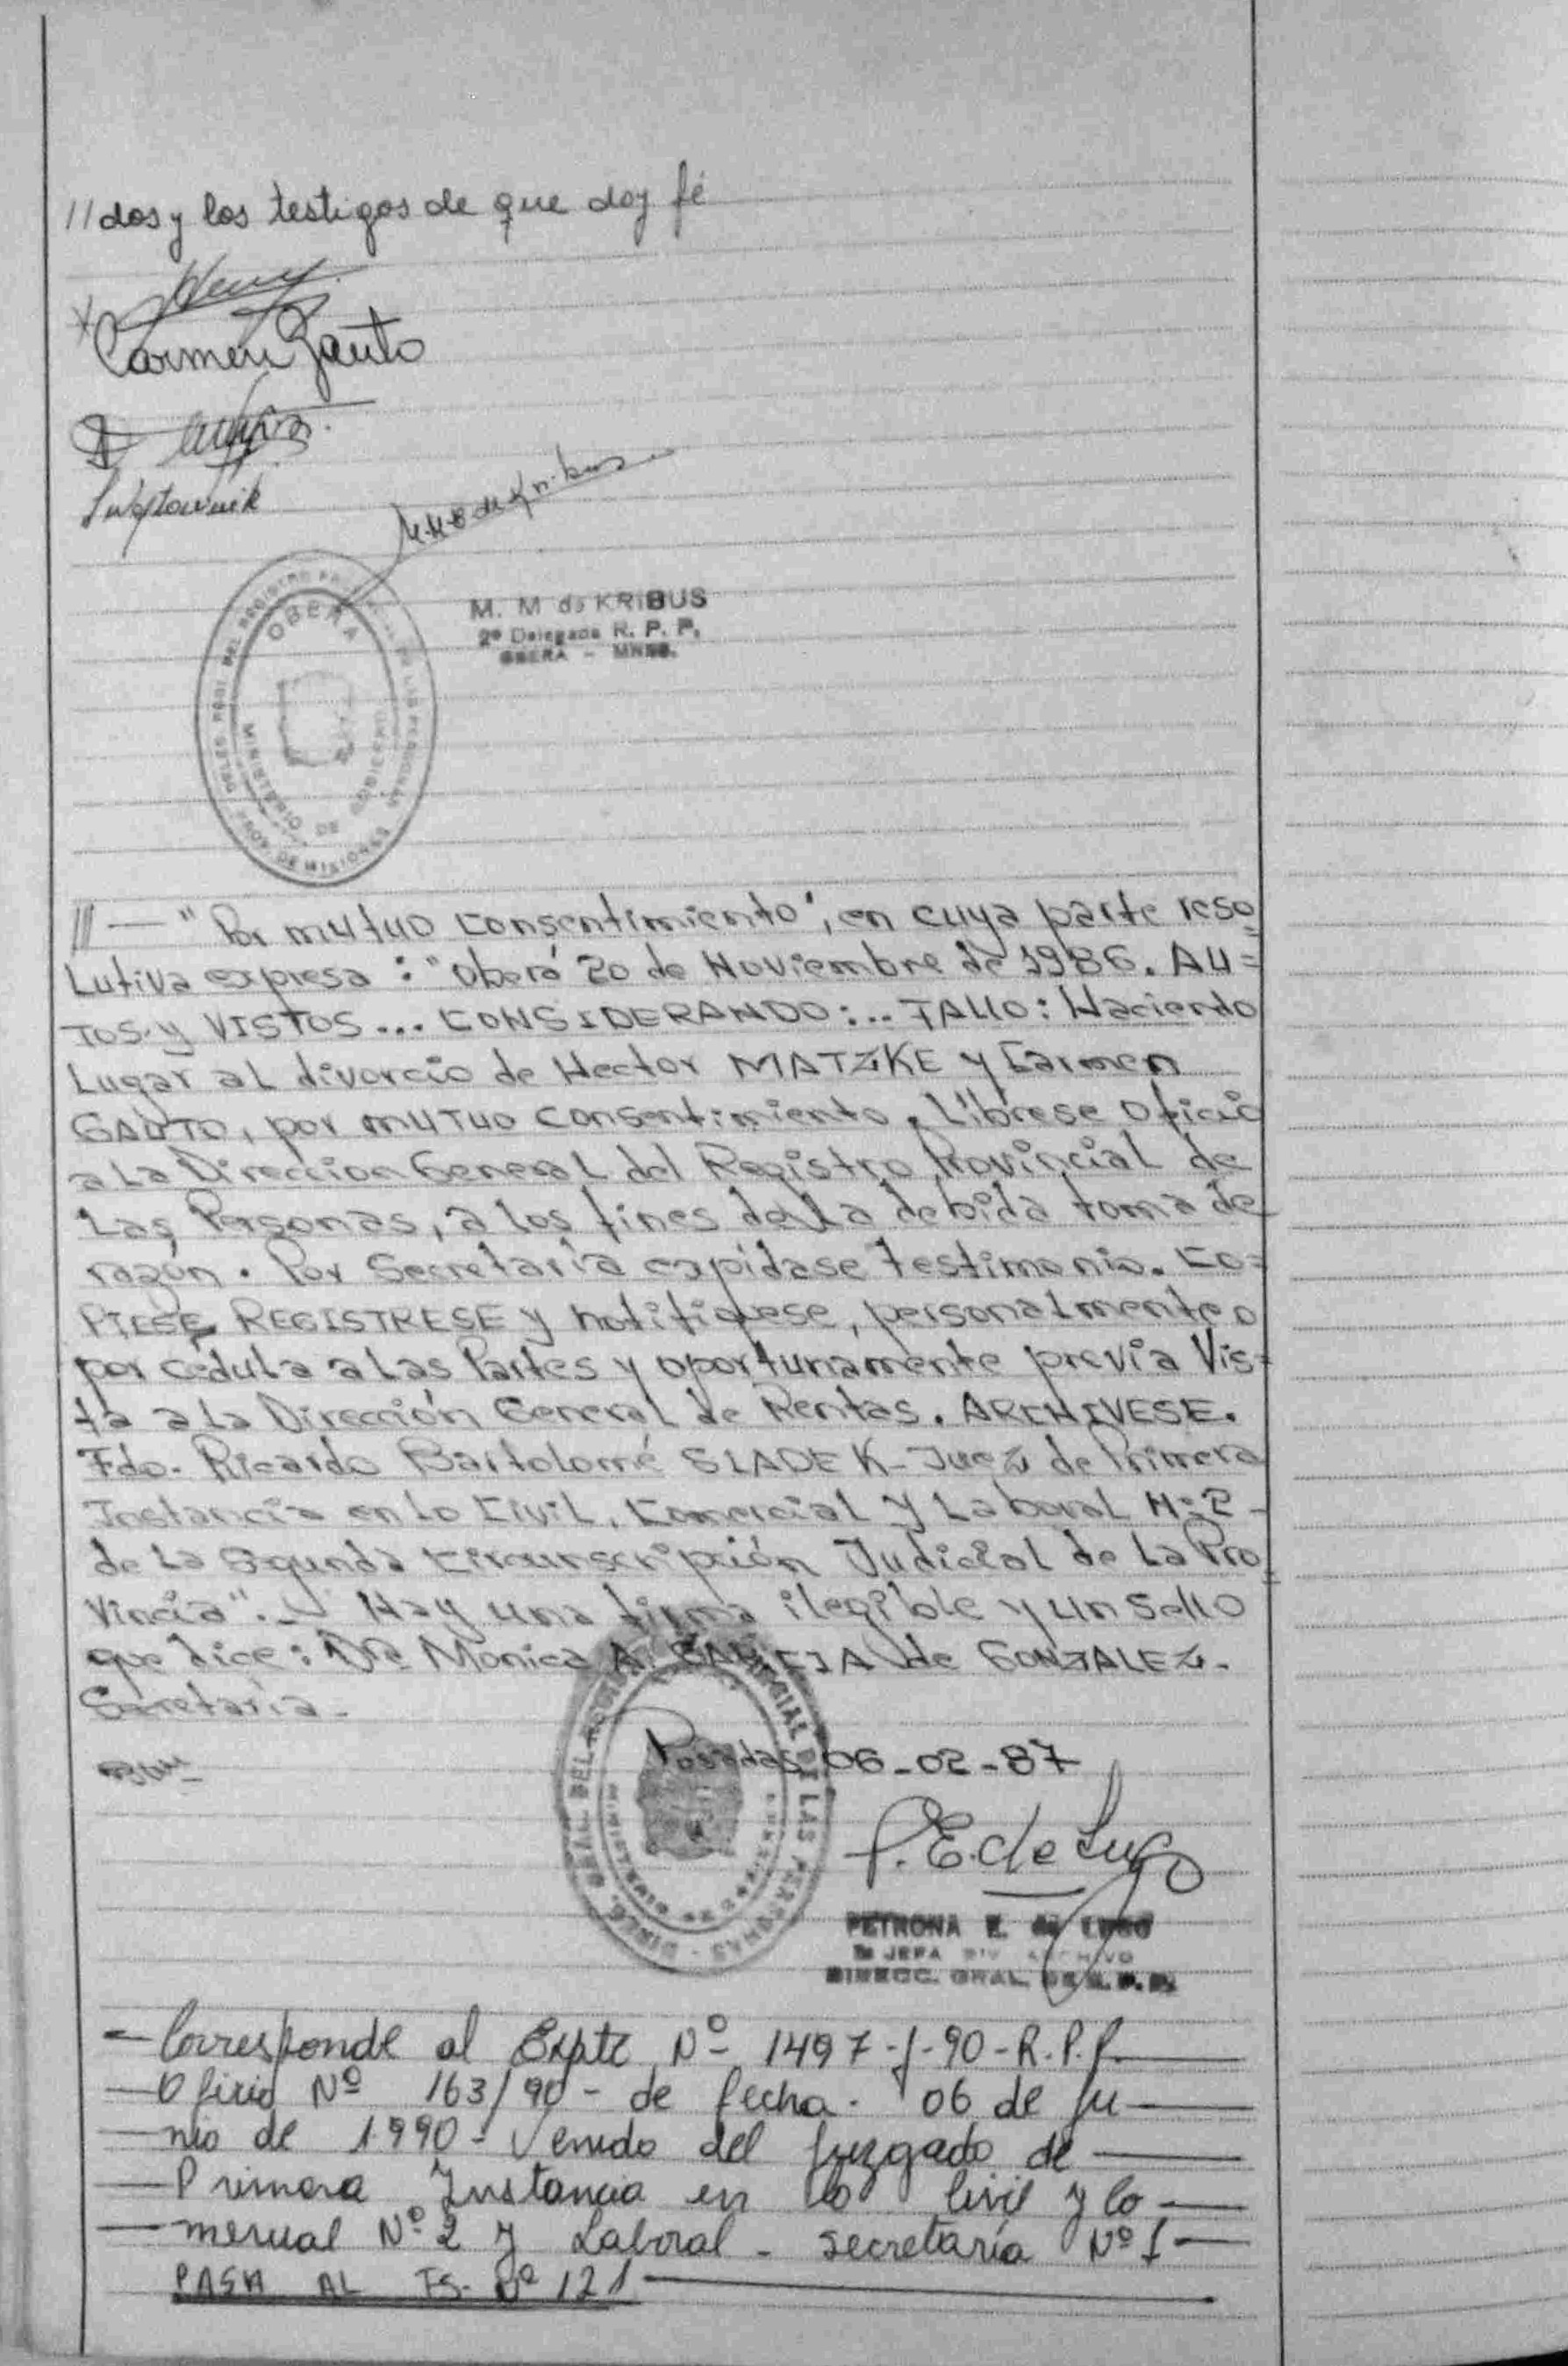 //dos y los testigos de que doy fé
Carmen Gauto
M. M de KRIBUS
2º Delegada R. P. P.
OBERA - MNES.
OBERA
MINISTERIO DE GOBIERNO
PROV. DE MISIONES
///— "Por mutuo consentimiento", en cuya parte reso=
Lutiva expresa : "Oberá 20 de Noviembre de 1986. AU=
TOS y VISTOS... CONSIDERANDO:... FALLO: Haciendo
Lugar al divorcio de Hector MATZKE y Carmen
GAUTO, por mutuo consentimiento. Líbrese Oficio
a La Direccion General del Registro Provincial de
Las Personas, a los fines de La debida toma de
razón. Por Secretaría expídase testimonio. CO=
PIESE, REGISTRESE y notifiquese, personalmente o
por cédula a Las Partes y oportunamente previa Vis=
ta a La Dirección General de Rentas. ARCHIVESE.
Fdo. Ricardo Bartolomé SLADEK - Juez de Primera
Instancia en Lo Civil, Comercial y Laboral Nº 2 -
de La Segunda Circunscripción Judicial de La Pro=
Vincia".- Hay una firma ilegible y un Sello
que dice: Dra. Monica A. de GONZALEZ.
Secretaria.-
Posadas, 06-02-87
P. E. de Lugo
PETRONA E. de LUGO
JEFA DIV. ARCHIVO
DIRECC. GRAL. DE R. P. P.
— Corresponde al Expte Nº 1497-J-90-R.P.P.—
—Oficio Nº 163/90 - de fecha - 06 de Ju—
—nio de 1990 - Venido del Juzgado de —
—Primera Instancia en lo Civil y Co—
—mercial Nº 2 y Laboral - secretaría Nº 1—
PASA AL FS. Nº 121—